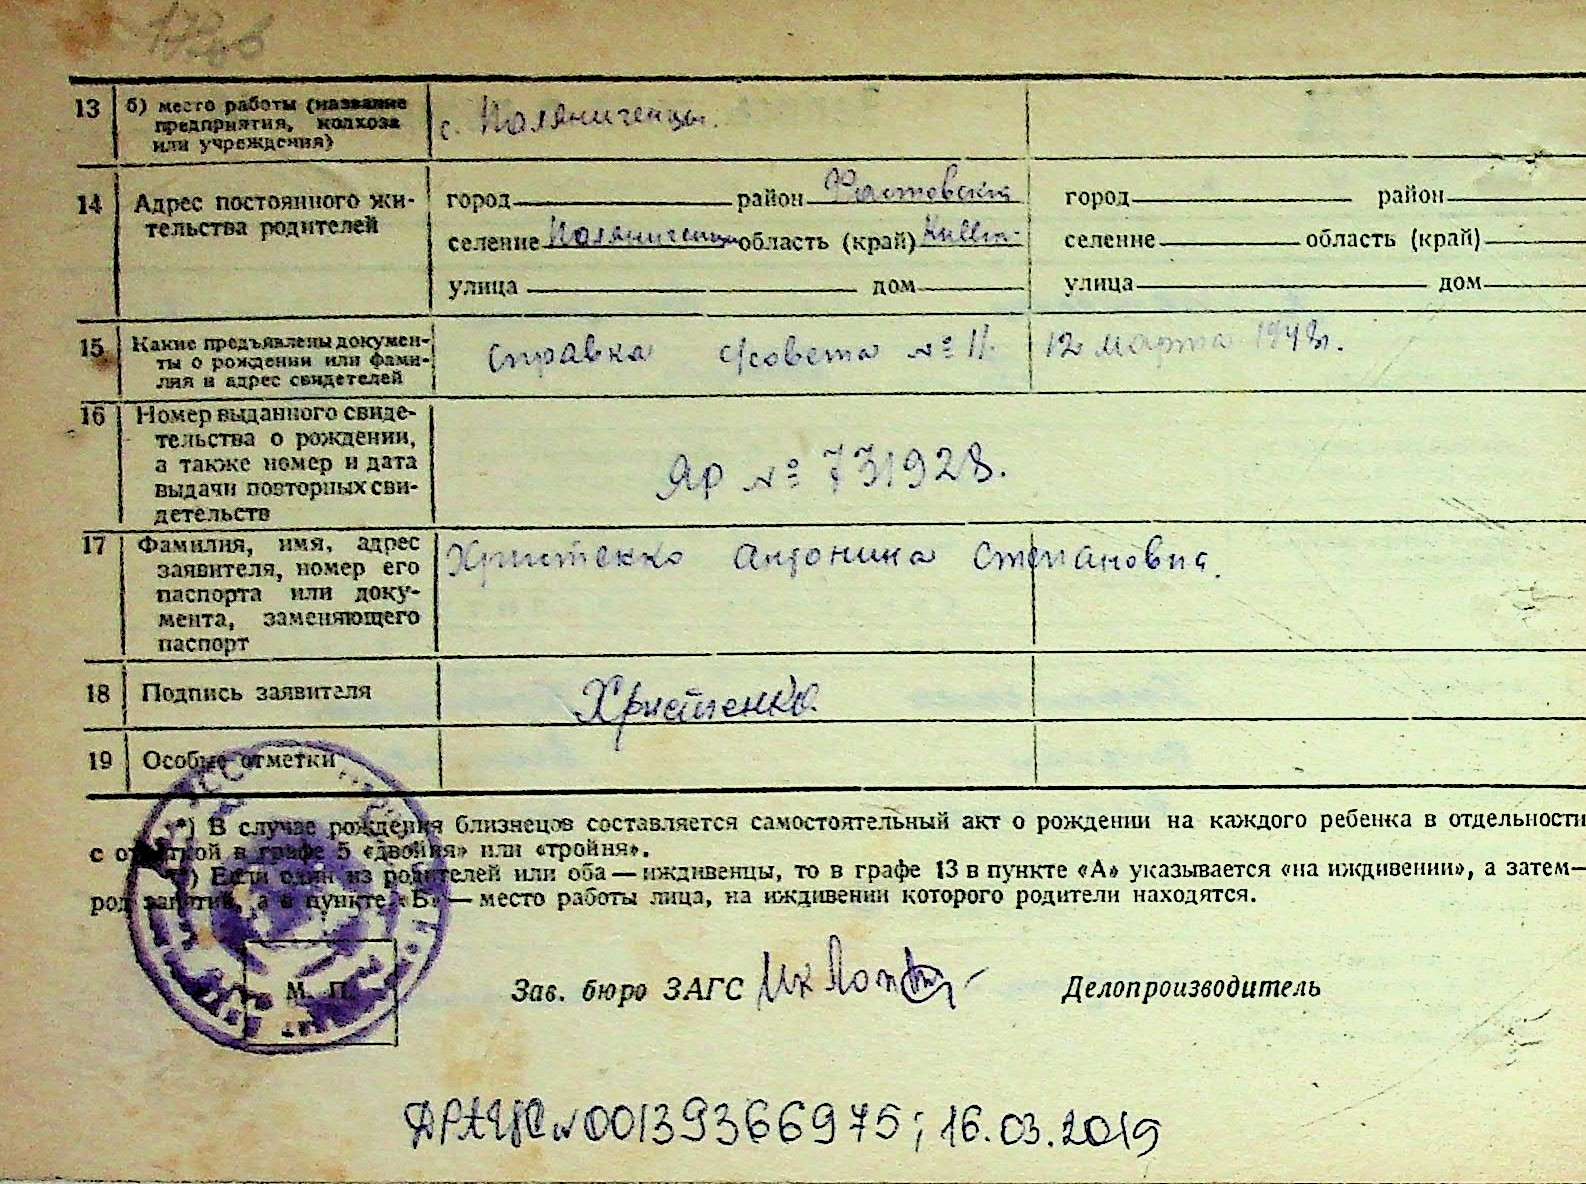 13 б) место работы (название
предприятия, колхоза
или учреждения)
с. Поляниченцы.
14 Адрес постоянного жи-
тельства родителей
город район Фастовский
селение Поляниченцы область (край) Киевс.
улица дом
город район
селение область (край)
улица дом
15 Какие предъявлены докумен-
ты о рождении или фами-
лия и адрес свидетелей
Справка с/совета № 11. 12 марта 1948г.
16 Номер выданного свиде-
тельства о рождении,
а также номер и дата
выдачи повторных сви-
детельств
ЯР № 731928.
17 Фамилия, имя, адрес
заявителя, номер его
паспорта или доку-
мента, заменяющего
паспорт
Христенко Антонина Степановна.
18 Подпись заявителя
Христенко
19 Особые отметки
*) В случае рождения близнецов составляется самостоятельный акт о рождении на каждого ребенка в отдельности
с отметкой в графе 5 «двойня» или «тройня».
) Если один из родителей или оба — иждивенцы, то в графе 13 в пункте «А» указывается «на иждивении», а затем—
род занятий, а в пункте «Б» — место работы лица, на иждивении которого родители находятся.
М. П.
Зав. бюро ЗАГС
Делопроизводитель
ДРАЦС № 00139366975; 16.03.2019